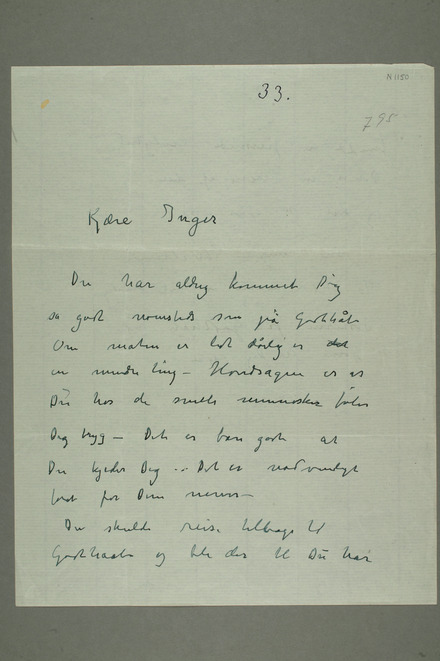 N 1150
33.
795
Kjære Inger
Du har aldrig kommet Dig
så godt nomsteds som på Godthåb
Om maten er lidt dårlig er det
en mindre ting – Hovedsagen er at
Du hos de snille mennesker føler
Dig tryg – Det er bare godt at
Du kjeder Dig – Det er nødvendigt
for Dine nerver –
Du skulde reise tilbage til
Godthaab og bli der til Du har